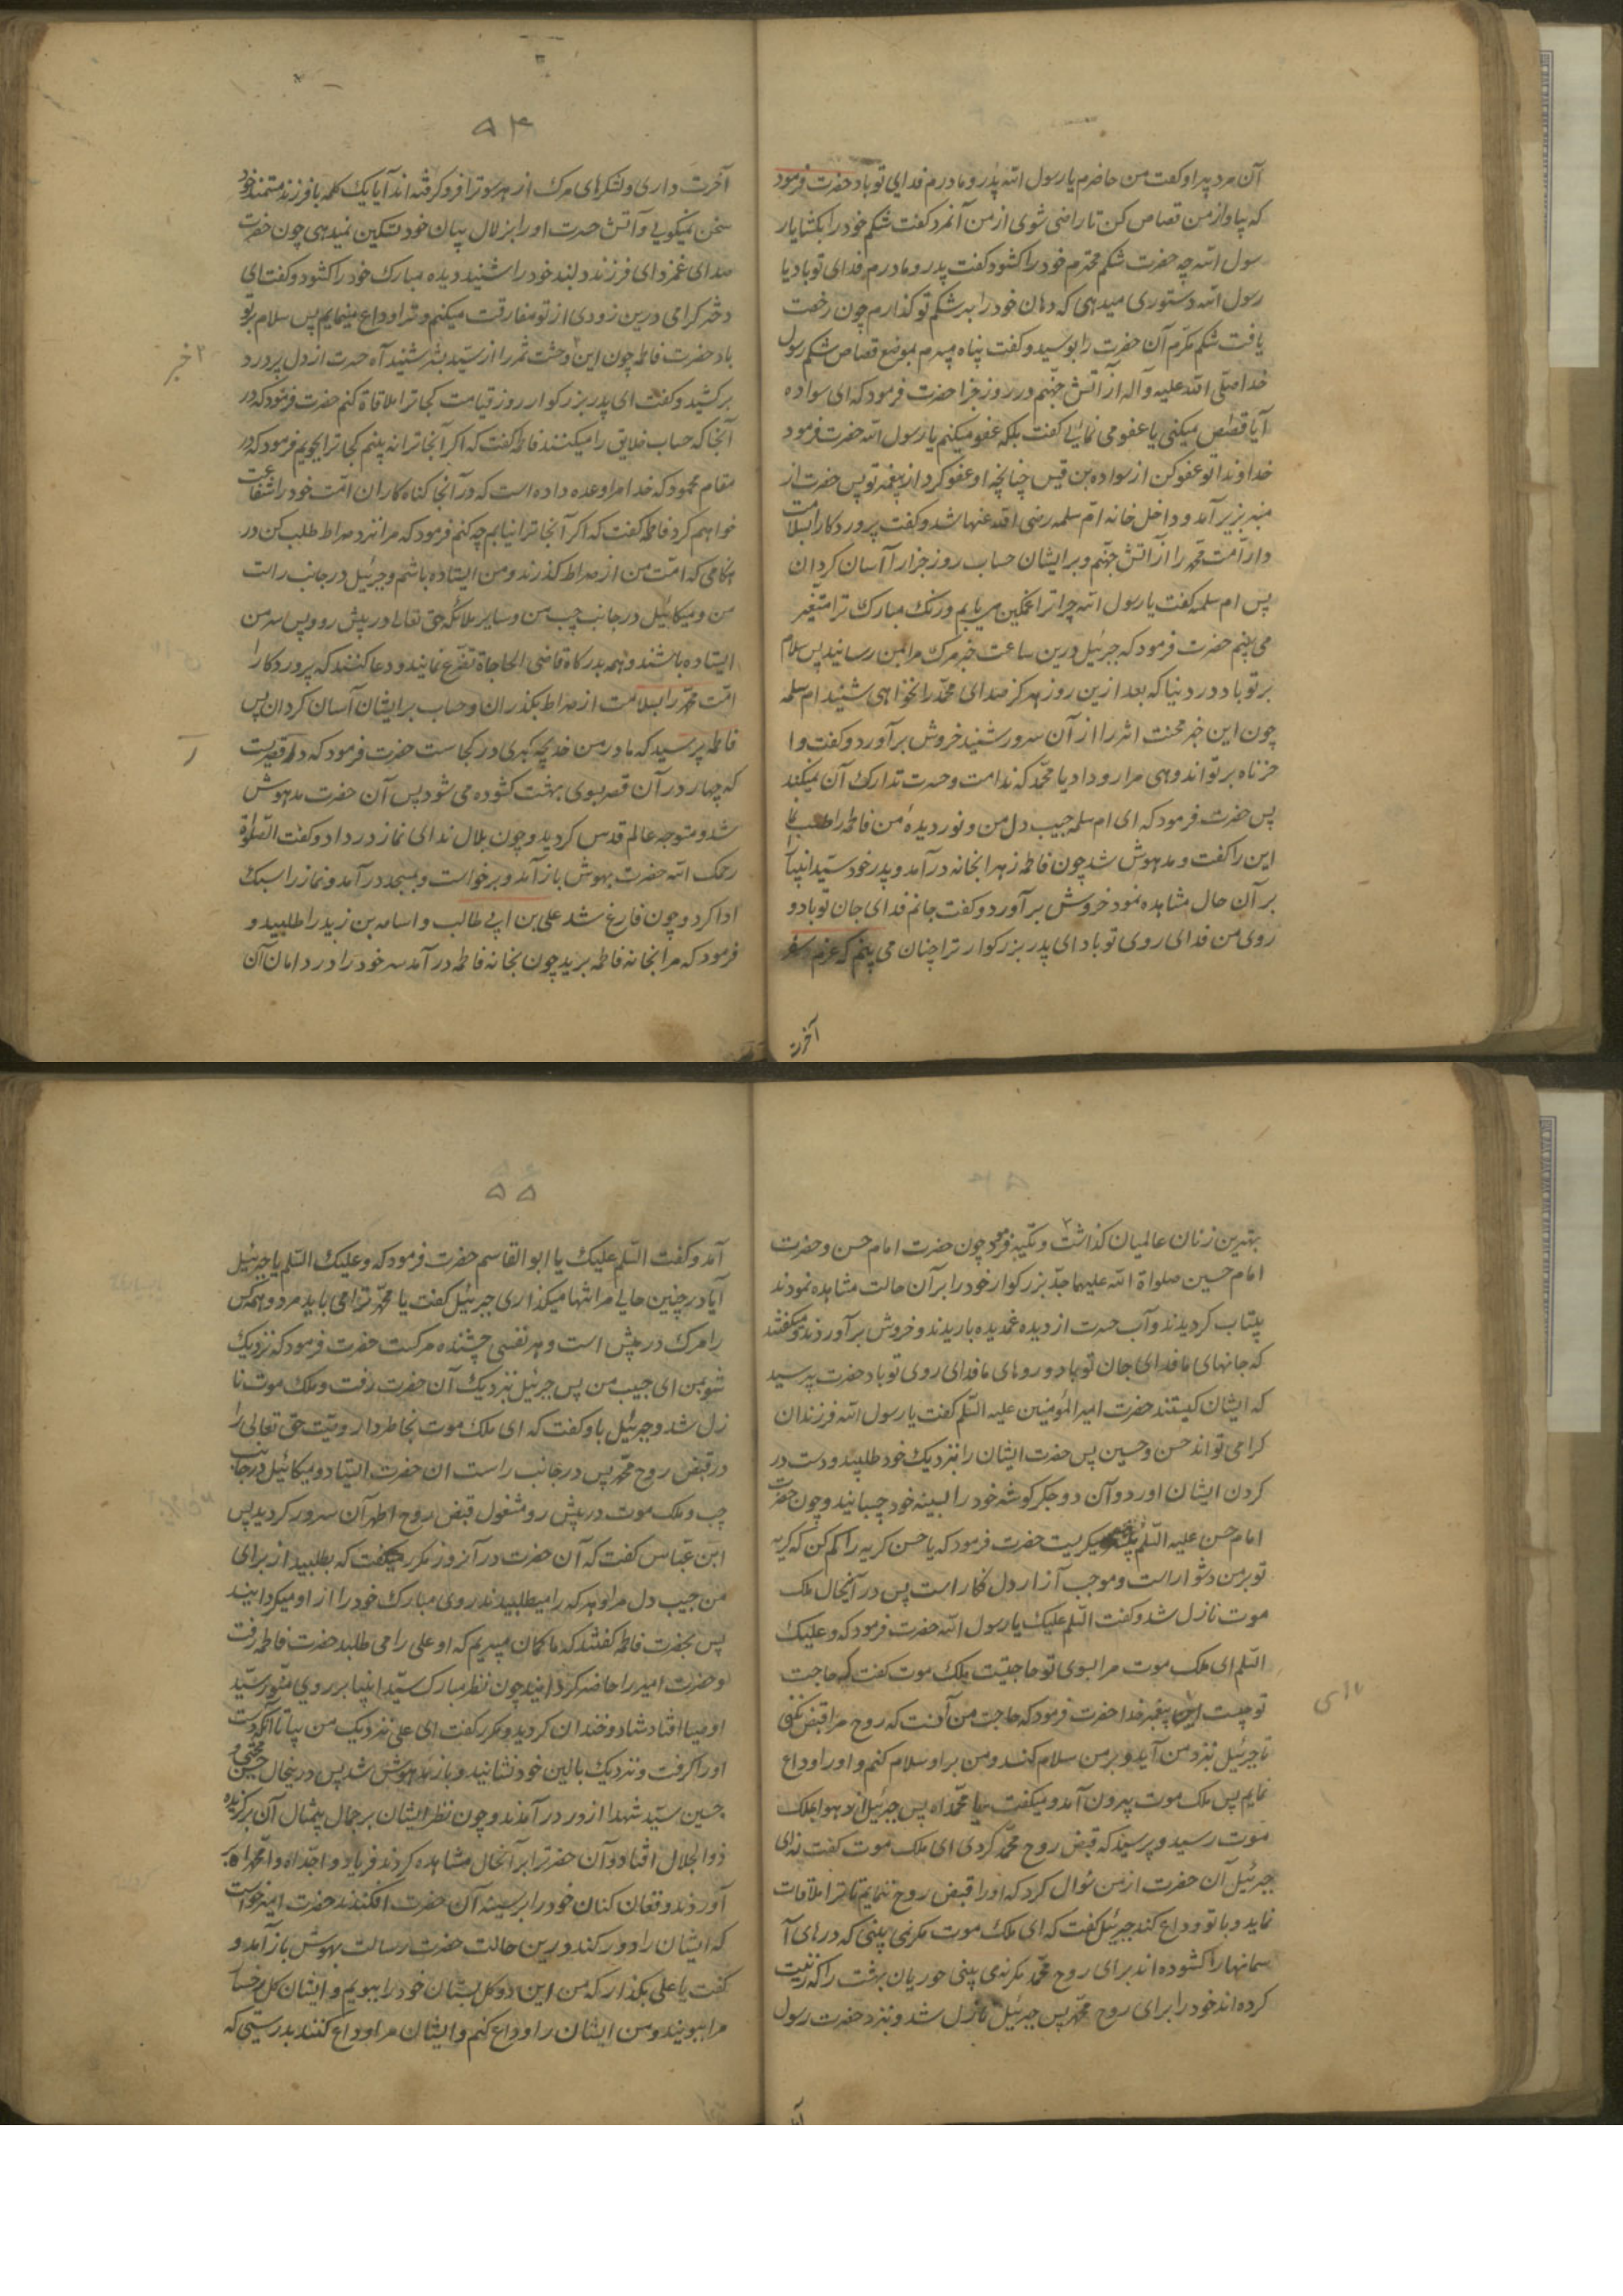 آن مرد پیر او گفت من حاضرم یا رسول الله پدر و مادرم فدای تو باد حضرت فرمود
که بیا و از من قصاص کن تا راضی شوی از من آنمرد گفت شکم خود را بکشا یا ر
سول الله چه حضرت شکم محترم خود را کشود گفت پدر و مادرم فدای تو باد یا
رسول الله دستوری میدهی که دهان خود را بر شکم تو گذارم چون رخصت
یافت شکم مکرّم آن حضرت را بوسید و گفت پناه میبرم بموضع قصاص شکم رسول
خدا صلّی الله علیه و آله از آتش جهنّم در روز جزا حضرت فرمود که ای سواده
آیا قصاص میکنی یا عفو می نمائی گفت بلکه عفو میکنم یا رسول الله حضرت فرمود
خداوندا تو عفو کن از سواده بن قیس چنانچه او عفو کرد از پیغمبر تو پس حضرت از
منبر بزیر آمد و داخل خانه ام سلمه رضی الله عنها شد و گفت پروردکارا بسلامت
دار امت محمّد را از آتش جهنّم و بر ایشان حساب روز جزا را آسان کردان
پس ام سلمه گفت یا رسول الله چرا ترا غمگین می یابم و رنک مبارک ترا متغیّر
می بینم حضرت فرمود که جبرئیل درین ساعت خبر مرک مرا بمن رسانید پس سلام
بر تو باد در دنیا که بعد ازین روز هرکز صدای محمّد را نخواهی شنید ام سلمه
چون این خبر محنت اثر را از آن سرور شنید خروش برآورد و گفت وا
حزناه بر تو اندوهی مرا رو داد یا محمّد که ندامت و حسرت تدارک آن نمیکند
پس حضرت فرمود که ای ام سلمه حبیب دل من و نور دیدهٔ من فاطمه را طلب نما
این را گفت و مدهوش شد چون فاطمه زهرا بخانه درآمد و پدر خود سیّد انبیا
بر آن حال مشاهده نمود خروش برآورد و گفت جانم فدای جان تو باد و
روی من فدای روی تو باد ای پدر بزرکوار ترا چنان می بینم که عزم سفر
آخرت
۵۴
آخرت داری و لشکرهای مرک از هر سو ترا فرو کرفته اند آیا یک کلمه با فرزند مستمند خود
سخن نمیکویی و آتش حسرت او را بزلال بیان خود تسکین نمیدهی چون حضرت
صدای غمزدای فرزند دلبند خود را شنید دیده مبارک خود را کشود و گفت ای
دختر کرامی درین زودی از تو مفارقت میکنم و ترا وداع مینمایم پس سلام بر تو
باد حضرت فاطمه چون این وحشت ثمر را از سیّد بشر شنید آه حسرت از دل پر درد
۲ خبر
برکشید و گفت ای پدر بزرکوار روز قیامت کجا ترا ملاقاة کنم حضرت فرمود که در
آنجا که حساب خلایق را میکنند فاطمه گفت که اکر آنجا ترا نه بینم کجا ترا بجویم فرمود که در
مقام محمود که خدا مرا وعده داده است که در آنجا کناه کاران امّت خود را شفاعت
خواهم کرد فاطمه گفت که اکر آنجا ترا نیابم چه کنم فرمود که مرا نزد صراط طلب کن در
هنکامی که امّت من از صراط کذرند و من ایستاده باشم و جبرئیل در جانب راست
من و میکائیل در جانب چپ من و سایر ملائکه حق تعالی در پیش رو و پس سر من
ایستاده باشند و همه بدرکاه قاضی الحاجاة تضرّع نمایند و دعا کنند که پروردکارا
امّت محمّد را بسلامت از صراط بکذران و حساب بر ایشان آسان کردان پس
فاطمه پرسید که مادر من خدیجه کبری در کجاست حضرت فرمود که در قصریست
که چهار در آن قصر بسوی بهشت کشوده می شود پس آن حضرت مدهوش
شد و متوجه عالم قدس کردید و چون بلال ندای نماز در داد و گفت الصّلوة
رحمک الله حضرت بهوش باز آمد و برخواست و بمسجد درآمد و نماز را سبک
ادا کرد و چون فارغ شد علی بن ابی طالب و اسامه بن زید را طلبید و
فرمود که مرا بخانه فاطمه برید چون بخانه فاطمه درآمد سر خود را در دامان آن
بهترین زنان عالمیان کذاشت و تکیه فرمود چون حضرت امام حسن و حضرت
امام حسین صلواة الله علیهما جدّ بزرکوار خود را بر آن حالت مشاهده نمودند
بیتاب کردیدند و آب حسرت از دیده غمدیده باریدند و خروش برآوردند و میکفتند
که جانهای ما فدای جان تو باد و روهای ما فدای روی تو باد حضرت پرسید
که ایشان کیستند حضرت امیر المؤمنین علیه السّلم گفت یا رسول الله فرزندان
کرامی تو اند حسن و حسین پس حضرت ایشان را نزدیک خود طلبید و دست در
کردن ایشان آورد و آن دو جکر کوشه خود را بسینه خود چسبانید و چون حضرت
امام حسن علیه السّلم بیشتر میکریست حضرت فرمود که یا حسن کریه را کم کن که کریه
تو بر من دشوار است و موجب آزار دل فکار است پس در آنحال ملک
موت نازل شد و گفت السّلم علیک یا رسول الله حضرت فرمود که و علیک
السّلم ای ملک موت مرا بسوی تو حاجتیست ملک موت گفت که حاجت
تو چیست ای پیغمبر خدا حضرت فرمود که حاجت من آنست که روح مرا قبض نکنی
تا جبرئیل نزد من آید و بر من سلام کند و من بر او سلام کنم و او را وداع
نمایم پس ملک موت بیرون آمد و میکفت یا محمّداه پس جبرئیل در هوا بملک
موت رسید و پرسید که قبض روح محمّد کردی ای ملک موت گفت نه ای
جبرئیل آن حضرت از من سؤال کرد که او را قبض روح ننمایم تا ترا ملاقات
نماید و با تو وداع کند جبرئیل گفت که ای ملک موت مکر نمی بینی که درهای آ
سمانها را کشوده اند برای روح محمّد مکر نمی بینی حوریان بهشت را که زینت
کرده اند خود را برای روح محمّد پس جبرئیل نازل شد و نزد حضرت رسول
۵۵
آمد و گفت السّلم علیک یا ابو القاسم حضرت فرمود که و علیک السّلم یا جبرئیل
آیا در چنین حالی مرا تنها میکذاری جبرئیل گفت یا محمّد ترا می باید مرد و همه کس
را مرک در پیش است و هر نفسی چشنده مرکست حضرت فرمود که نزدیک
شو بمن ای حبیب من پس جبرئیل نزدیک آن حضرت رفت و ملک موت نا
زل شد و جبرئیل باو گفت که ای ملک موت بخاطر دار وصیّت حق تعالی را
در قبض روح محمّد پس در جانب راست آن حضرت ایستاد و میکائیل در جانب
چپ و ملک موت در پیش رو مشغول قبض روح اطهر آن سرور کردید پس
ابن عبّاس گفت که آن حضرت در آنروز مکرر میکفت که بطلبید از برای
من حبیب دل مرا و هر که را میطلبیدند روی مبارک خود را از او میکردانید
پس بحضرت فاطمه گفتند که ما کمان میبریم که او علی را می طلبد حضرت فاطمه رفت
و حضرت امیر را حاضر کردانید چون نظر مبارک سیّد انبیا بر روی منوّر سیّد
اوصیا افتاد شاد و خندان کردید و مکرر گفت ای علی نزدیک من بیا تا آنکه دست
او را کرفت و نزدیک بالین خود نشانید و باز مدهوش شد پس درین حال حسن مجتبی و
حسین سیّد شهدا از در درآمدند و چون نظر ایشان بر جمال بیمثال آن برکزیده
ذوالجلال افتاد و آن حضرترا بر آنحال مشاهده کردند فریاد وا جدّاه وا محمّداه بر
آوردند و فغان کنان خود را بر سینه آن حضرت افکندند حضرت امیر خواست
که ایشان را دور کند درین حالت حضرت رسالت بهوش باز آمد و
گفت یا علی بکذار که من این دو کل بستان خود را ببویم و ایشان کل رخسار
مرا ببویند و من ایشان را وداع کنم و ایشان مرا وداع کنند بدرستی که